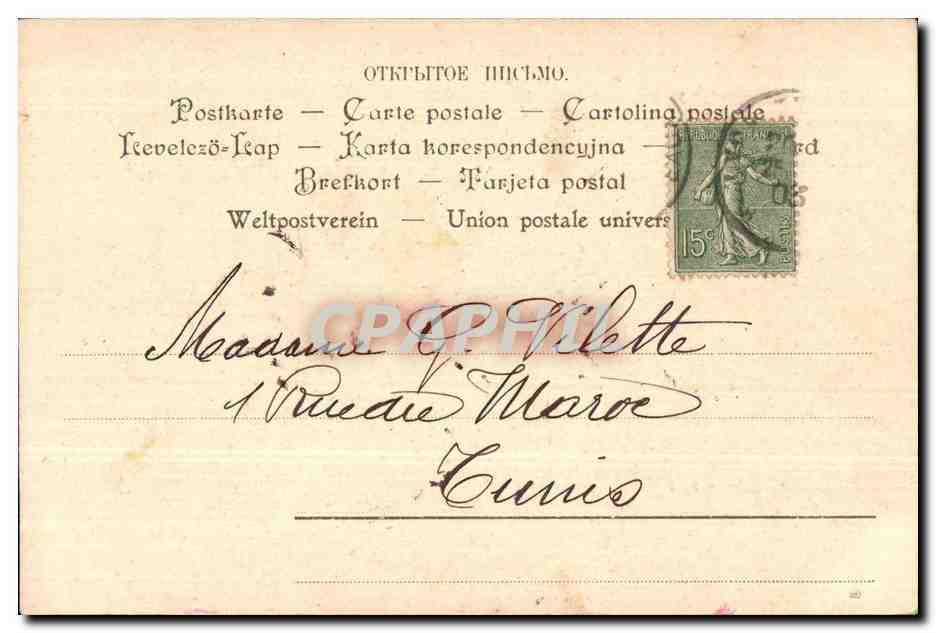 ОТКРЫТОЕ ПИСЬМО.
Postkarte — Carte postale — Cartolina postale
Levelező-Lap — Karta korespondencyjna — rd
Brefkort — Tarjeta postal
Weltpostverein — Union postale univers
REPUBLIQUE FRANÇAISE
15c
POSTES
03
CPAPHIL
Madame G. Vilette
1 Rue du Maroc
Tunis